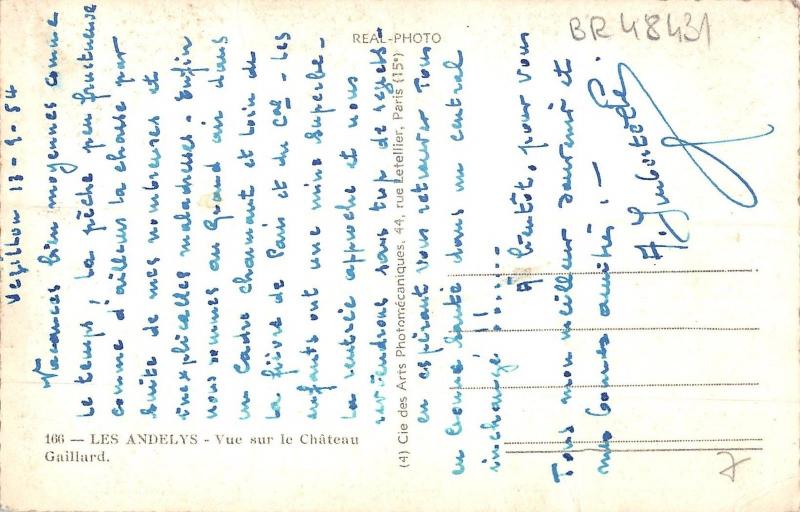 REAL-PHOTO
BR48431
13-9-54
Vacances bien moyennes comme
le temps, la pêche peu fructueuse
comme d'ailleurs la chasse par
suite de mes nombreuses et
inexplicables maladresses - Enfin
nous sommes au grand air dans
un cadre charmant et loin de
la fièvre de Paris et du Cal - Les
enfants ont une mine superbe -
La rentrée approche et nous
reviendrons sans trop de regrets
en espérant vous retrouver tous
en bonne santé dans un central
inchangé !! .....
A bientôt, pour vous
Tous mon meilleur souvenir et
mes bonnes amitiés. -
A.
(4) Cie des Arts Photomécaniques, 44, rue Letellier, Paris (15e)
166 — LES ANDELYS - Vue sur le Château
Gaillard.
7